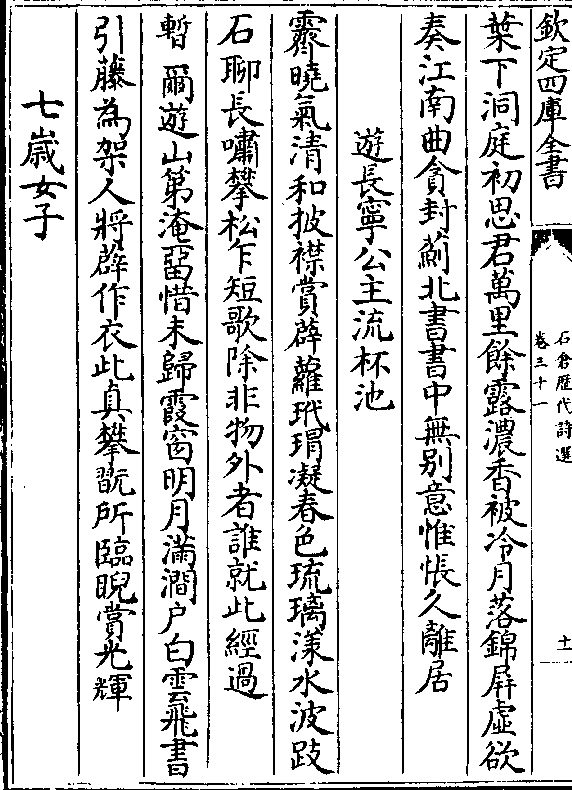 欽定四庫全書
石倉歴代詩選
卷三十一
十一
葉下洞庭初思君萬里餘露濃香被冷月落錦屛虛欲
奏江南曲貪封薊北書書中無别意惟悵久離居
遊長寧公主流杯池
霽曉氣清和披襟賞薜蘿玳瑁凝春色琉璃漾水波跂
石聊長嘯攀松乍短歌除非物外者誰就此經過
暫爾遊山第淹留惜未歸霞窗明月滿澗户白雲飛書
引藤為架人將薜作衣此真攀翫所臨睨賞光輝
七歳女子